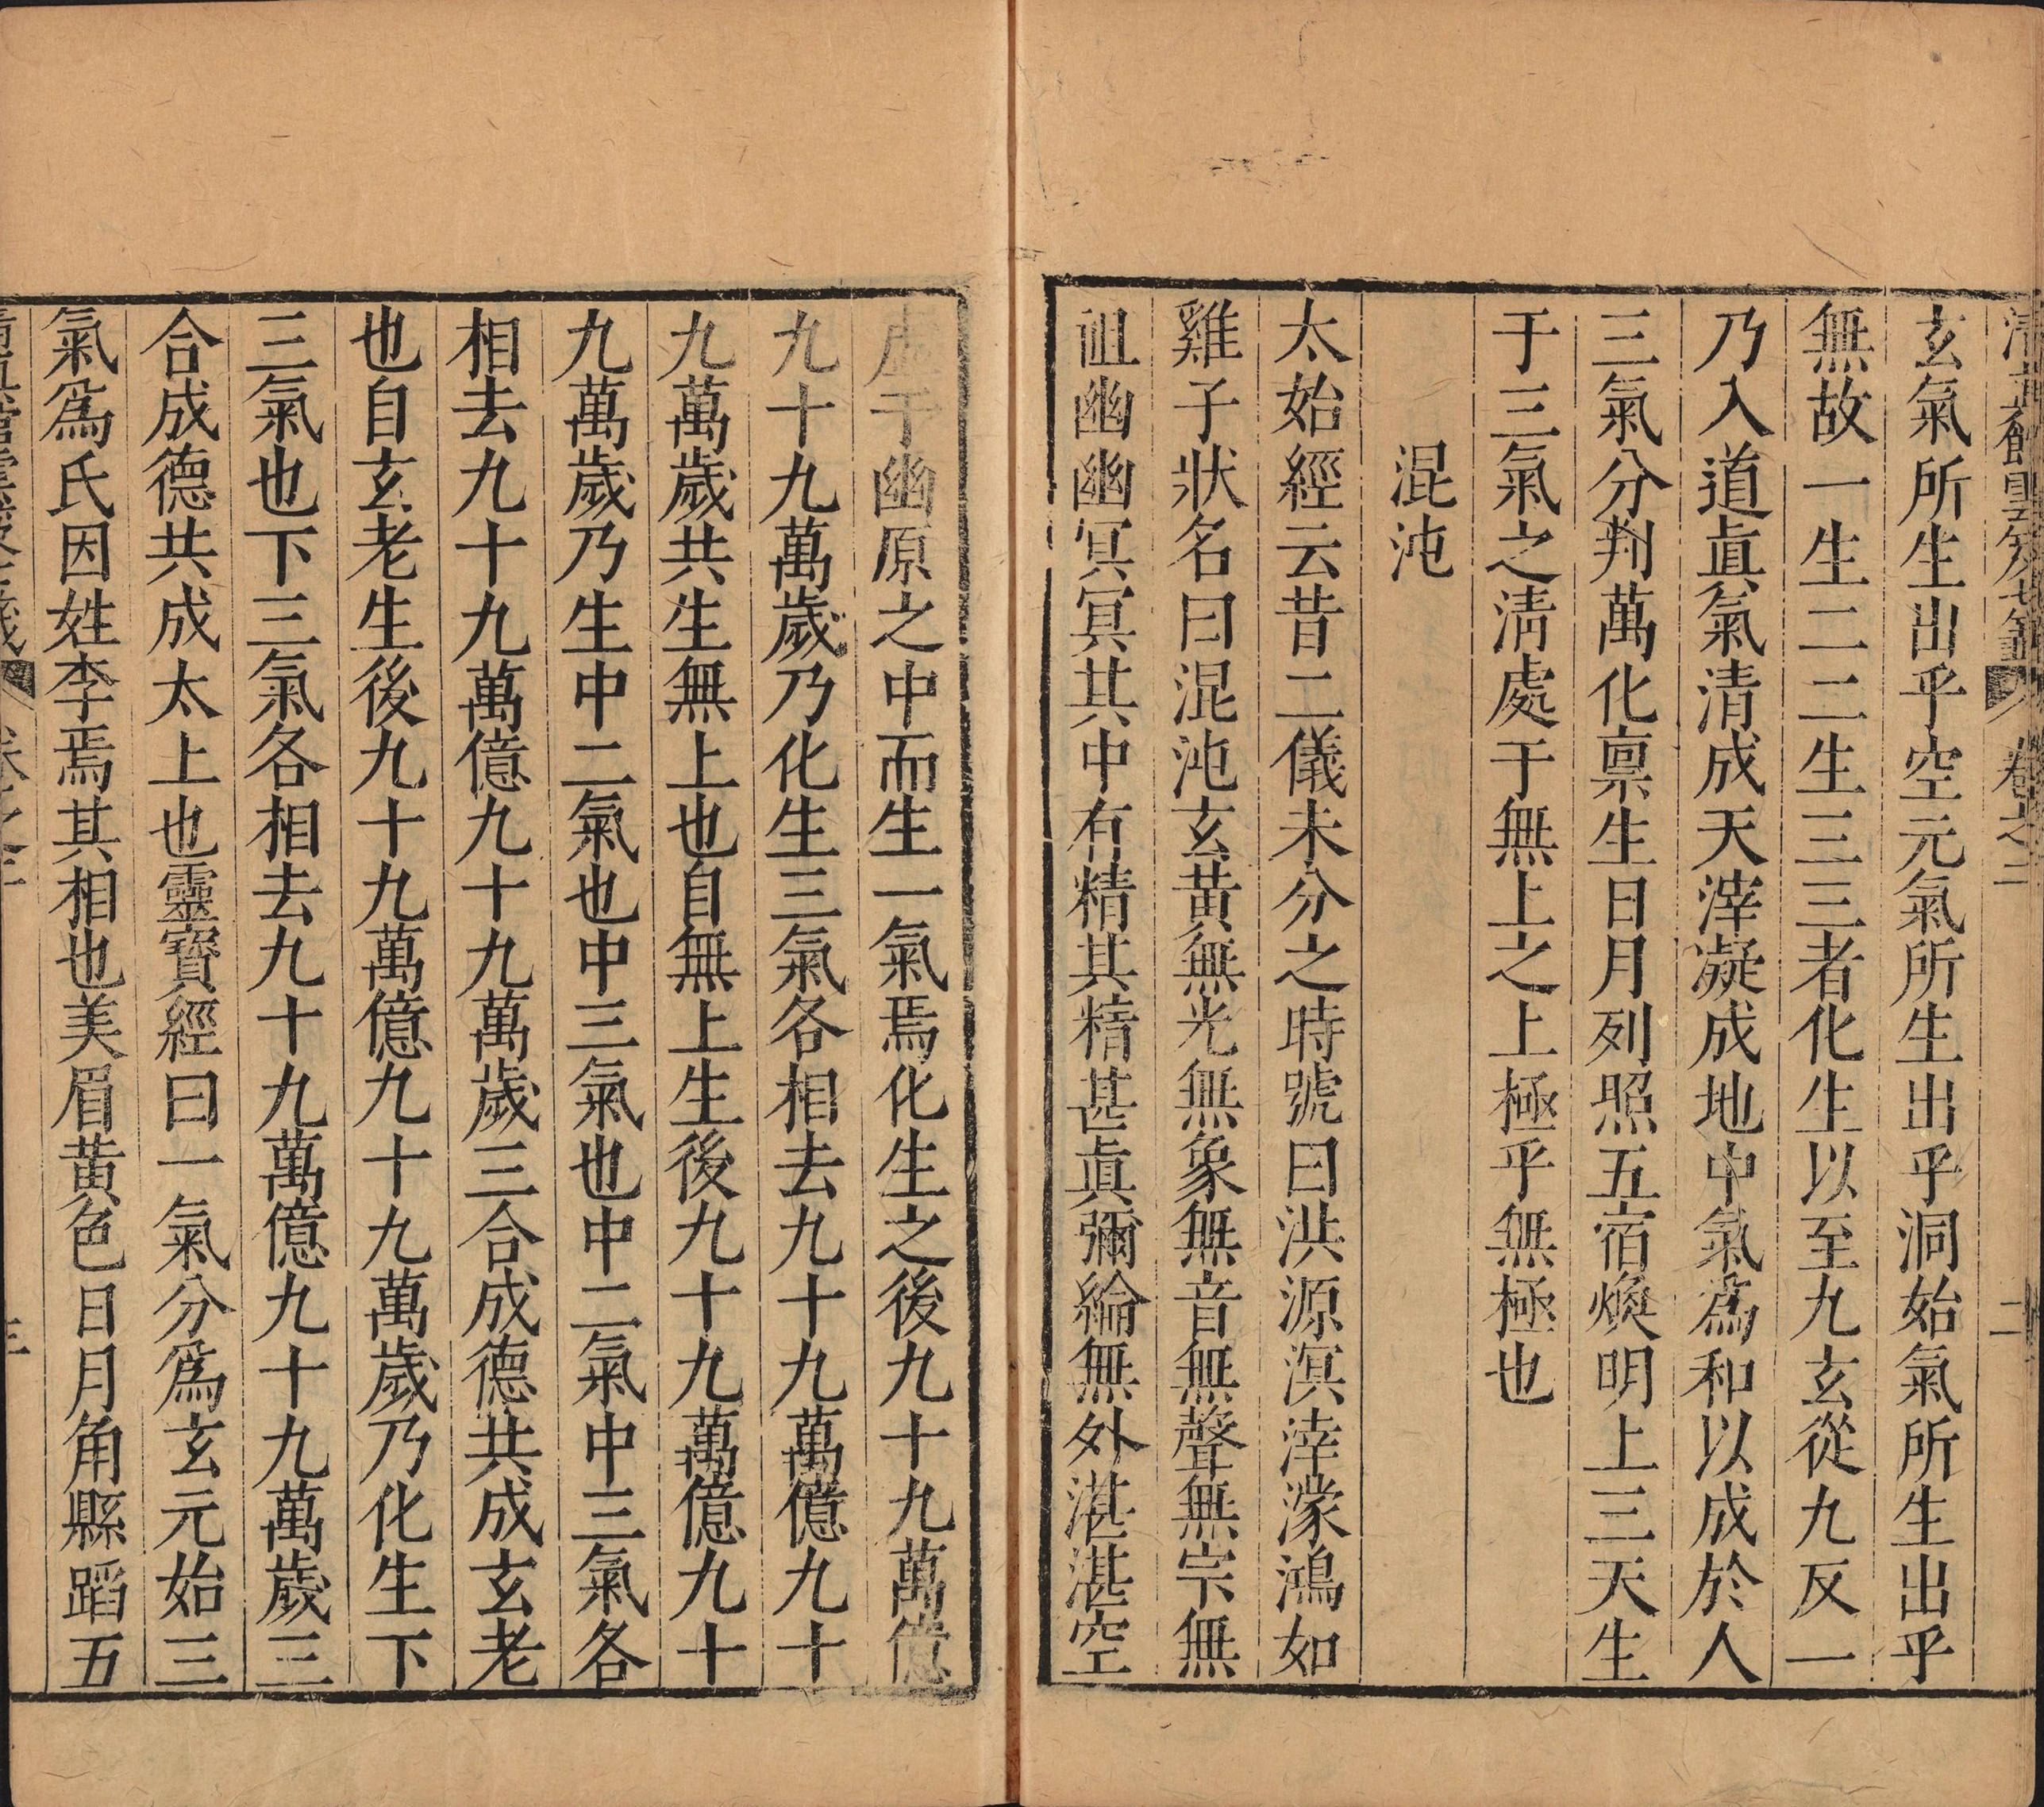 清真館雲笈七籤 卷之二 二
玄氣所生出乎空元氣所生出乎洞始氣所生出乎
無故一生二二生三三者化生以至九玄從九反一
乃入道眞氣清成天滓凝成地中氣爲和以成於人
三氣分判萬化禀生日月列照五宿煥明上三天生
于三氣之清處于無上之上極乎無極也
混沌
太始經云昔二儀未分之時號曰洪源溟涬濛鴻如
雞子狀名曰混沌玄黃無光無象無音無聲無宗無
祖幽幽冥冥其中有精其精甚眞彌綸無外湛湛空
成于幽原之中而生一氣焉化生之後九十九萬億
九十九萬歲乃化生三氣各相去九十九萬億九十
九萬歲共生無上也自無上生後九十九萬億九十
九萬歲乃生中二氣也中三氣也中二氣中三氣各
相去九十九萬億九十九萬歲三合成德共成玄老
也自玄老生後九十九萬億九十九萬歲乃化生下
三氣也下三氣各相去九十九萬億九十九萬歲三
合成德共成太上也靈寶經曰一氣分爲玄元始三
氣爲氏因姓李焉其相也美眉黃色日月角縣蹈五